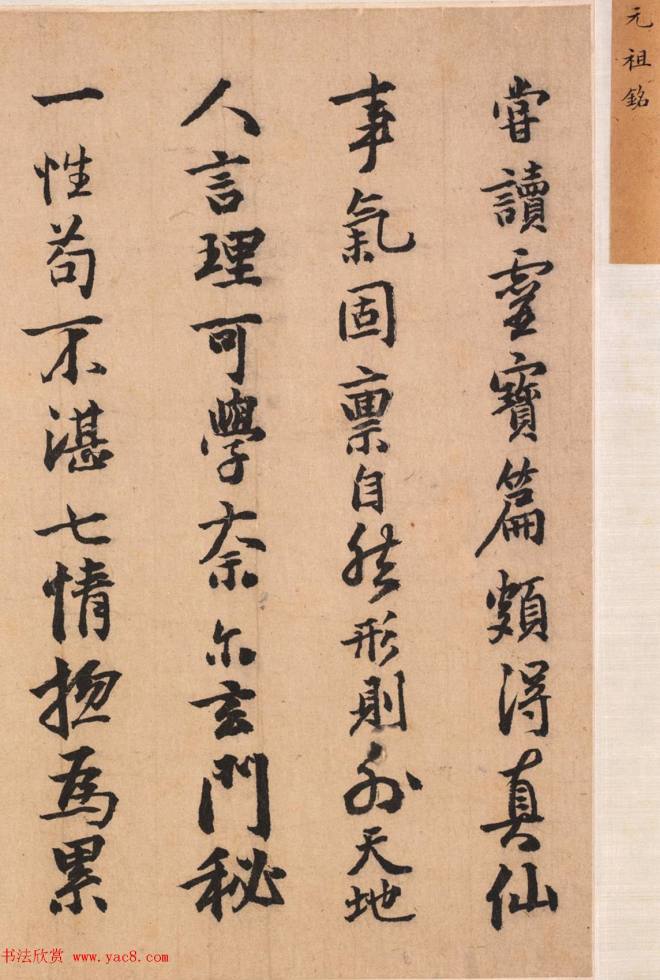 元祖銘
嘗讀靈寶篇頗得真仙
事氣固稟自然形則外天地
人言理可學奈尔玄門秘
一性苟不湛七情揔為累
书法欣赏 www.yac8.com